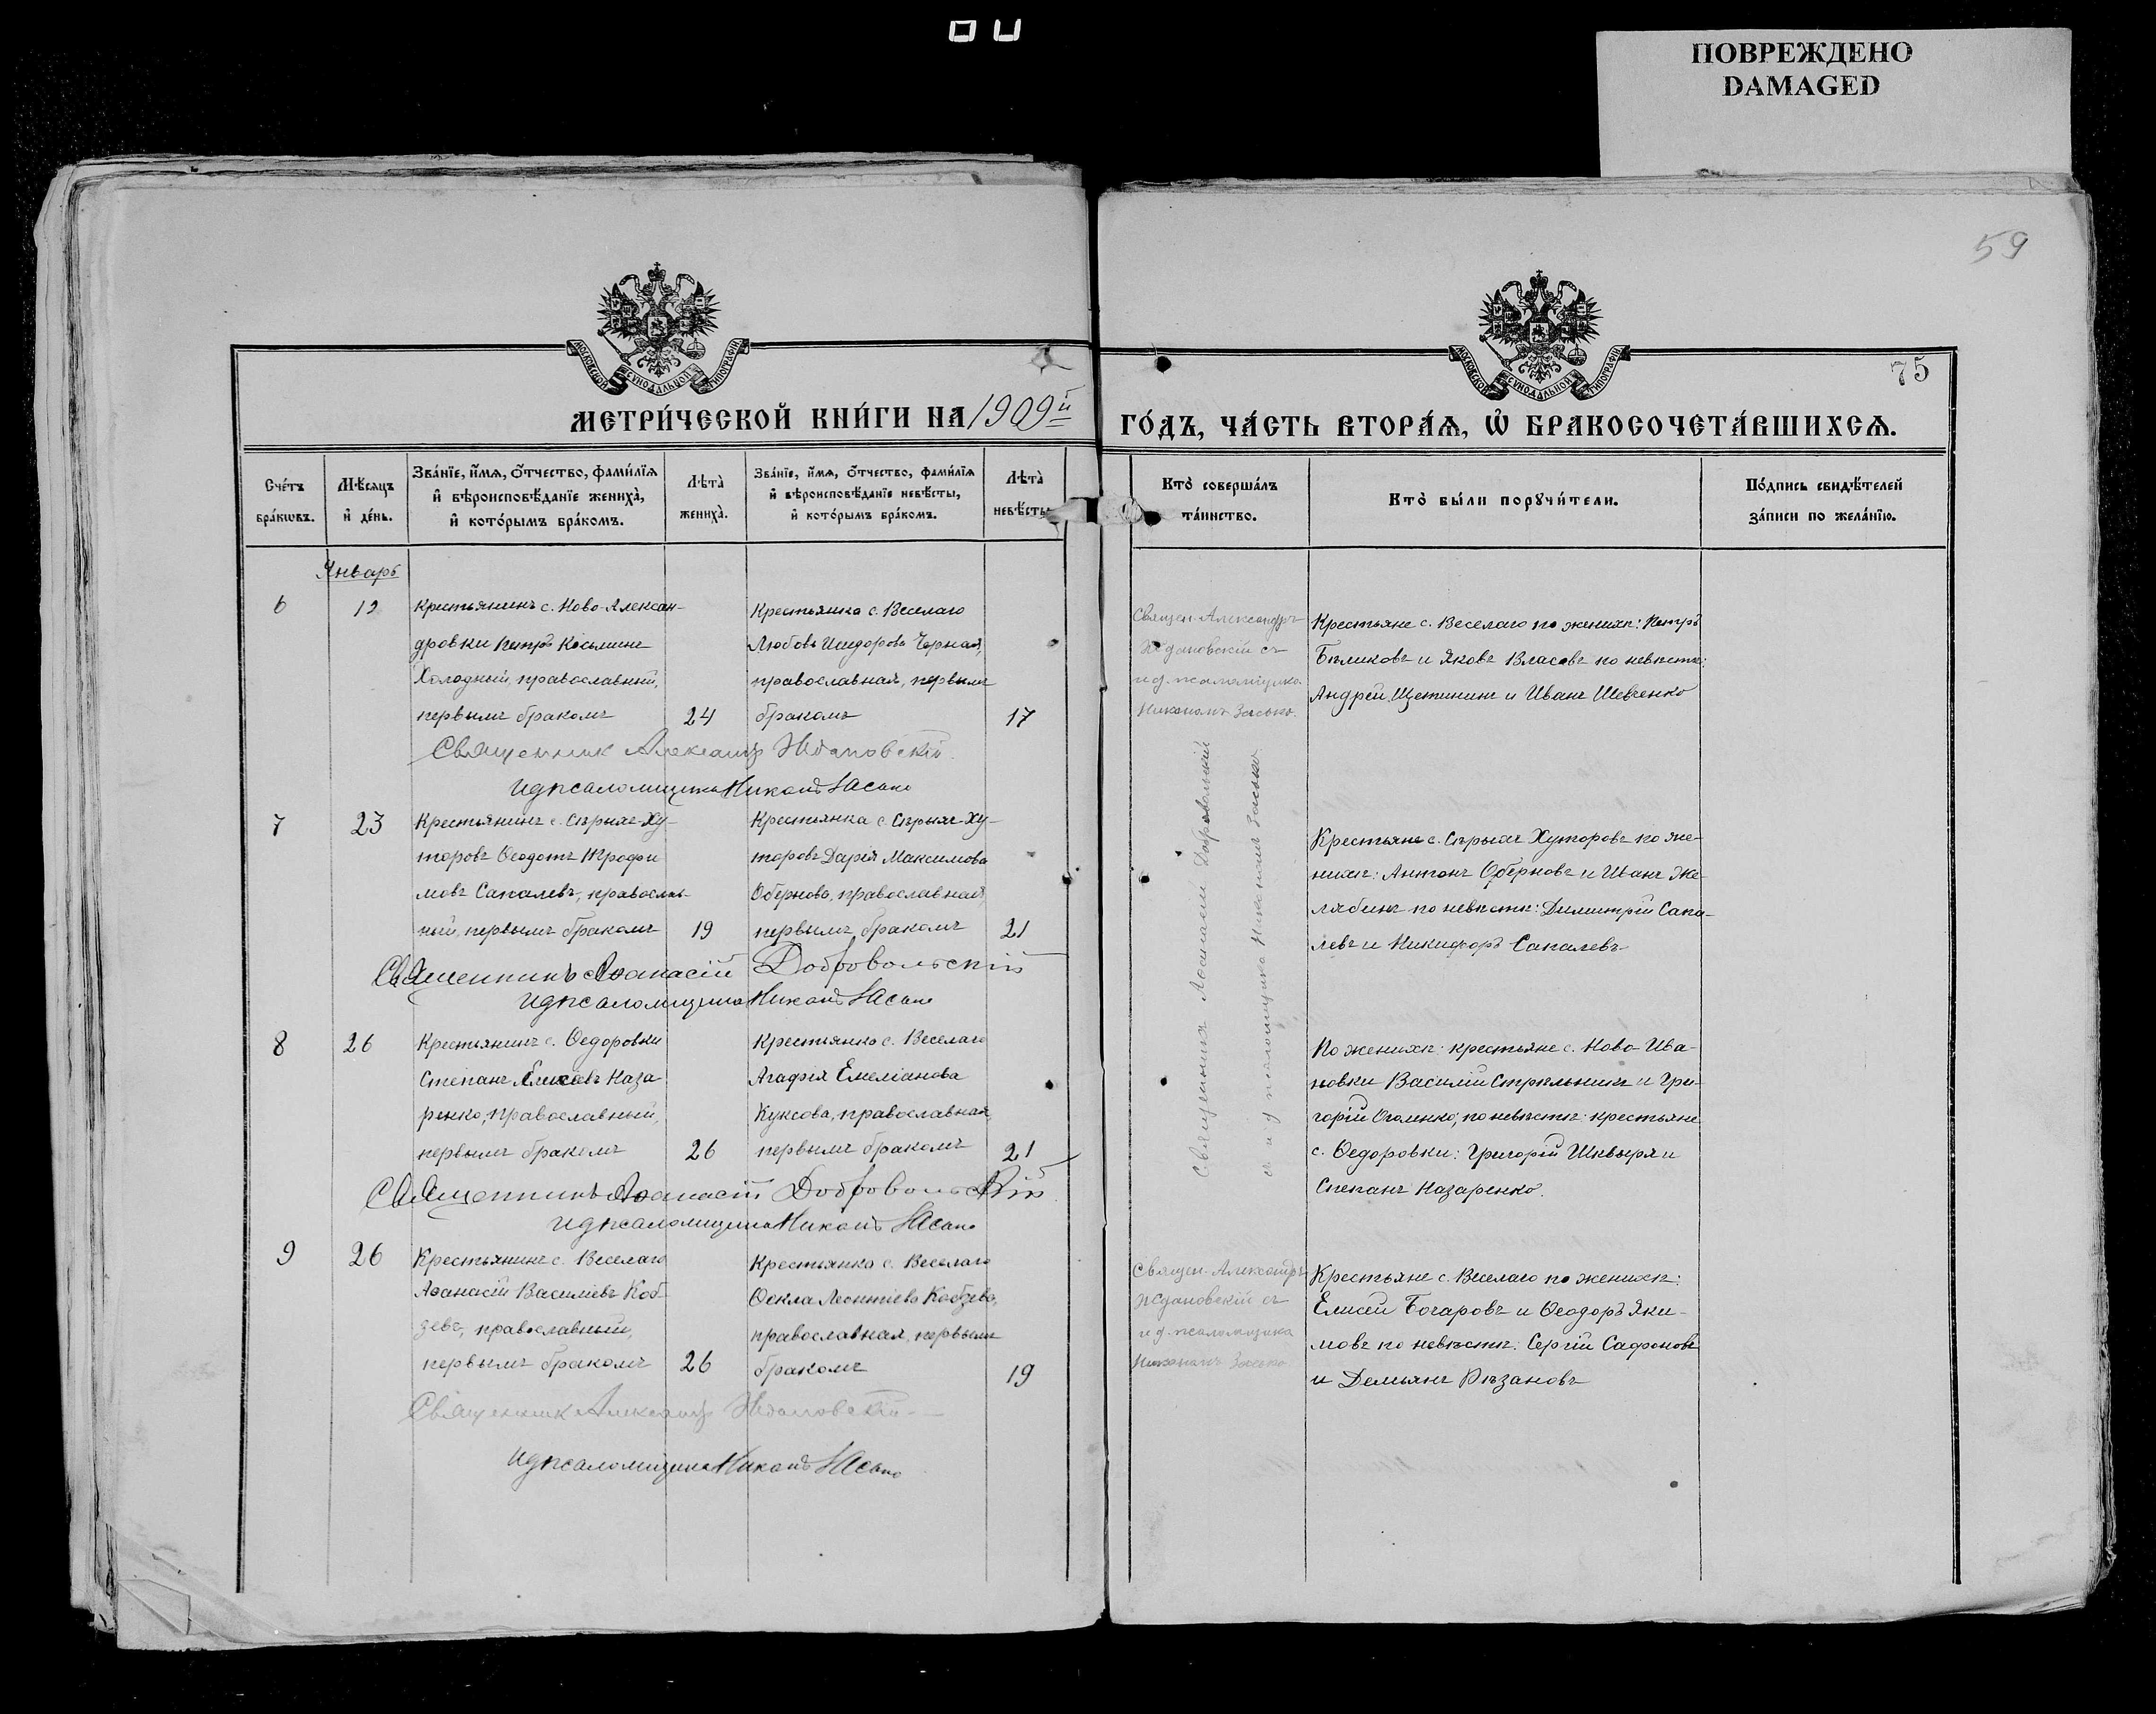 ПОВРЕЖДЕНО
DAMAGED
59
75
МОСКОВСКОЙ СѴНОДАЛЬНОЙ ТИПОГРАФІИ
МОСКОВСКОЙ СѴНОДАЛЬНОЙ ТИПОГРАФІИ
МЕТРИ́ЧЕСКОЙ КНИ́ГИ НА 1909й
ГО́ДЪ, ЧА́СТЬ ВТОРА́Ѧ, Ѡ҆ БРАКОСОЧЕТА́ВШИХСѦ.
Сче́тъ
бра́кѡвъ.
Мѣ́сѧцъ
и҆ де́нь.
Зва́нїе, и҆́мѧ, ѻ҆́тчество, фами́лїѧ
и҆ вѣроисповѣ́данїе жениха̀,
и҆ кото́рымъ бра́комъ.
Лѣта̀
жениха̀.
Зва́нїе, и҆́мѧ, ѻ҆́тчество, фами́лїѧ
и҆ вѣроисповѣ́данїе невѣ́сты,
и҆ кото́рымъ бра́комъ.
Лѣта̀
невѣ́сты
Кто̀ соверша́лъ
та́инство.
Кто̀ бы́ли порꙋчи́тели.
По́дпись свидѣ́телей
за́писи по жела́нїю.
Январь
6
12
Крестьянинъ с. Ново-Алексан-
дровки Петръ Косьминъ
Холодный, православный,
первымъ бракомъ
24
Крестьянка с. Веселаго
Любовь Исидорова Черная,
православная, первымъ
бракомъ
17
Священ. Александръ
Ждановскій съ
и д. псаломщика
Никономъ Засько.
Крестьяне с. Веселаго по женихѣ: Петръ
Бѣликовъ и Яковъ Власовъ по невѣстѣ:
Андрей Щетининъ и Иванъ Шевченко
Священник Александр Ждановскій.
и д псаломщика Никонъ Засько
7
23
Крестьянинъ с. Сѣрыхъ-Ху-
торовъ Ѳеодотъ Трофи
мовъ Сапалевъ, православ-
ный, первымъ бракомъ
19
Крестьянка с. Сѣрыхъ-Ху-
торовъ Дарія Максимова
Обернова, православная,
первымъ бракомъ
21
Священникъ Аѳанасій Добровольскій
съ и д псаломщика Никономъ Засько
Крестьяне с. Сѣрыхъ Хуторовъ по же-
нихѣ: Антонъ Оберновъ и Иванъ Же-
лябинъ по невѣстѣ: Димитрій Сапа-
левъ и Никифоръ Сапалевъ
Священникъ Аѳанасій Добровольскій
и д псаломщика Никонъ Засько
8
26
Крестьянинъ с. Ѳедоровки
Степанъ Назა
ренко, православный,
первымъ бракомъ
26
Крестьянка с. Веселаго
Агафія Емеліанова
Куксова, православная,
первымъ бракомъ
21
По женихѣ: крестьяне с. Ново-Ива-
новки Василій Стрѣльникъ и Гри-
горій по невѣстѣ: крестьяне
с. Ѳедоровки: Григорій Шквыря и
Степанъ Назаренко.
Священникъ Аѳанасій Добровольскій
и д псаломщика Никонъ Засько
9
26
Крестьянинъ с. Веселаго
Аѳанасій Василіевъ Коб-
зевъ, православный,
первымъ бракомъ
26
Крестьянка с. Веселаго
Ѳекла Леонтіева Кобзева,
православная, первымъ
бракомъ
19
Священ. Александръ
Ждановскій съ
и д. псаломщика
Никономъ Засько
Крестьяне с. Веселаго по женихѣ:
Елисей Бочаровъ и Ѳеодоръ Яки-
мовъ по невѣстѣ: Сергій Сафоновъ
и Демьянъ Рѣзановъ
Священник Александр Ждановскій
и д псаломщика Никонъ Засько